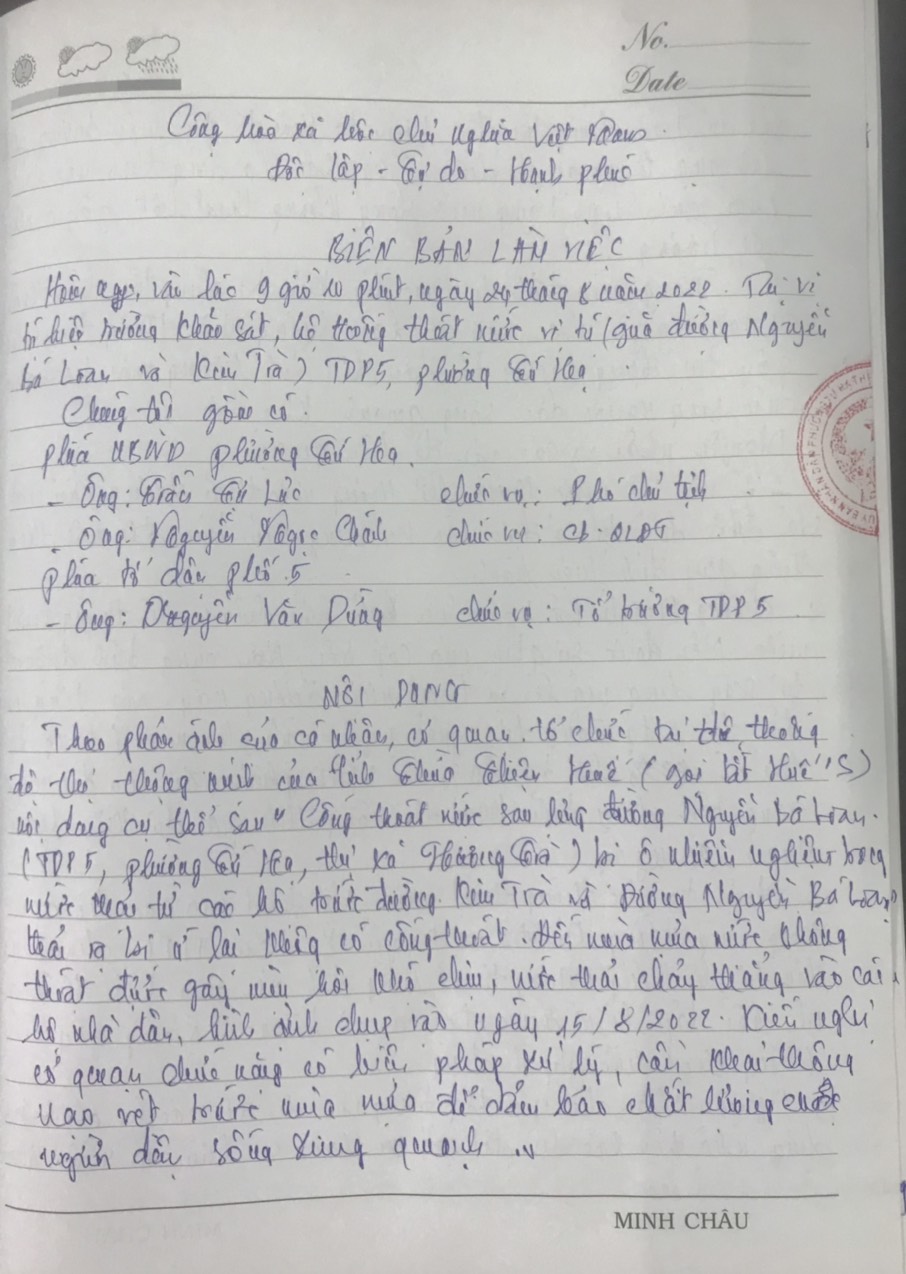 No.
Date
Cộng hoà xã hội chủ nghĩa Việt Nam
Độc lập - Tự do - Hạnh phúc
BIÊN BẢN LÀM VIỆC
Hôm nay, vào lúc 9 giờ 10 phút, ngày 24 tháng 8 năm 2022. Tại vị
trí hiện trường khảo sát, hệ thống thoát nước vị trí (giữa đường Nguyễn
Bá Loan và Kim Trà) TDP5, phường Tứ Hạ
Chúng tôi gồm có.
phía UBND phường Tứ Hạ.
- Ông: Trần Tử Lực chức vụ: Phó chủ tịch
- Ông: Nguyễn Ngọc Chánh chức vụ: CB. QLĐT
phía tổ dân phố 5
- Ông: Nguyễn Văn Dũng chức vụ: Tổ trưởng TDP5
NỘI DUNG
Theo phản ánh của cá nhân, cơ quan, tổ chức tại hệ thống
đô thị thông minh của tỉnh Thừa Thiên Huế (gọi tắt Huế'S)
nội dung cụ thể sau "Cống thoát nước sau lưng đường Nguyễn Bá Loan.
(TDP5, phường Tứ Hạ, thị xã Hương Trà) bị ô nhiễm nghiêm trọng
nước thải từ các hộ trước đường Kim Trà và Đường Nguyễn Bá Loan
thải ra bị ứ lại không có cống thoát. Đến mùa mưa nước không
thoát được gây mùi hôi khó chịu, nước thải chảy thẳng vào các
hộ nhà dân, hình ảnh chụp vào ngày 15/8/2022. Kiến nghị
cơ quan chức năng có biện pháp xử lý, cần khai thông
nạo vét trước mùa mưa để đảm bảo chất lượng cuộc
người dân sống xung quanh
MINH CHÂU